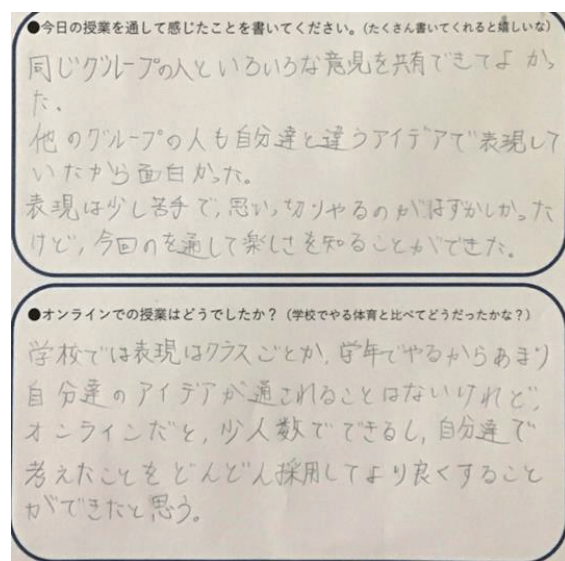 ●今日の授業を通して感じたことを書いてください。(たくさん書いてくれると嬉しいな)
同じグループの人といろいろな意見を共有できてよかっ
た。
他のグループの人も自分達と違うアイデアで表現して
いたから面白かった。
表現は少し苦手で,思いっ切りやるのがはずかしかった
けど,今回のを通して楽しさを知ることができた。
●オンラインでの授業はどうでしたか?(学校でやる体育と比べてどうだったかな?)
学校では表現はクラスごとか,学年でやるからあまり
自分達のアイデアが通されることはないけれど,
オンラインだと,少人数でできるし,自分達で
考えたことをどんどん採用してより良くすること
ができたと思う。